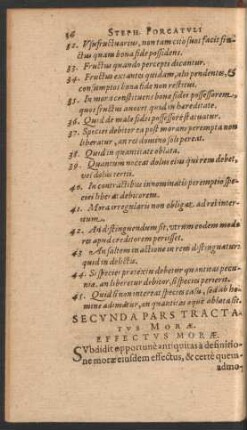 36 STEPH. FORCATVLI
32. Vsufructuarius, non tam citò suos facit fru-
ctus quàm bona fide possidens.
33. Fructus quando percepti dicantur.
34. Fructus extantes quidam, alij pendentes, &
consumptos bona fide non restitui.
35. In mora constituens bona fidei possessorem,
quos fructus amittet, quid in hæreditate.
36. Quid de malæ fidei possessore statuatur.
37. Speciei debitor ea post moram perempta non
liberatur, an rei domino soli pereat.
38. Quid in quantitate oblata.
39. Quantum noceat dolus eius qui rem debet,
vel dolus tertij.
40. In contractibus innominatis perempto spe-
ciei liberat debitorem.
41. Mora irregularis non obligat, ad rei interi-
tum.
42. Ad distinguendum sit, vtrùm eodem modo
res apud creditorem perijsset.
43. An saltem in actione in rem distinguatur:
quid in debitis.
44. Si species pretextu debetur quantitas pecu-
nia, an liberetur debitor, si species perierit.
45. Quid si non intereat species casu, sed ab ho-
mine adimatur, an quantitas æquè oblata sit.
SECVNDA PARS TRACTA-
TVS MORÆ.
EFFECTVS MORÆ.
SVbdidit opportunè antiquitas à definitio-
ne moræ eiusdem effectus, & certè quæuis
admo-